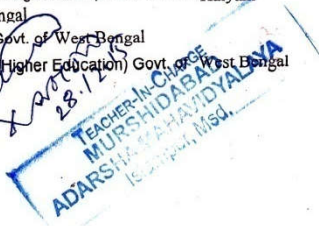 ngal
Govt. of West Bengal
(Higher Education) Govt. of West Bengal
28.12.15
TEACHER-IN-CHARGE
MURSHIDABAD
ADARSHA MAHAVIDYALAYA
Islampur, Msd.